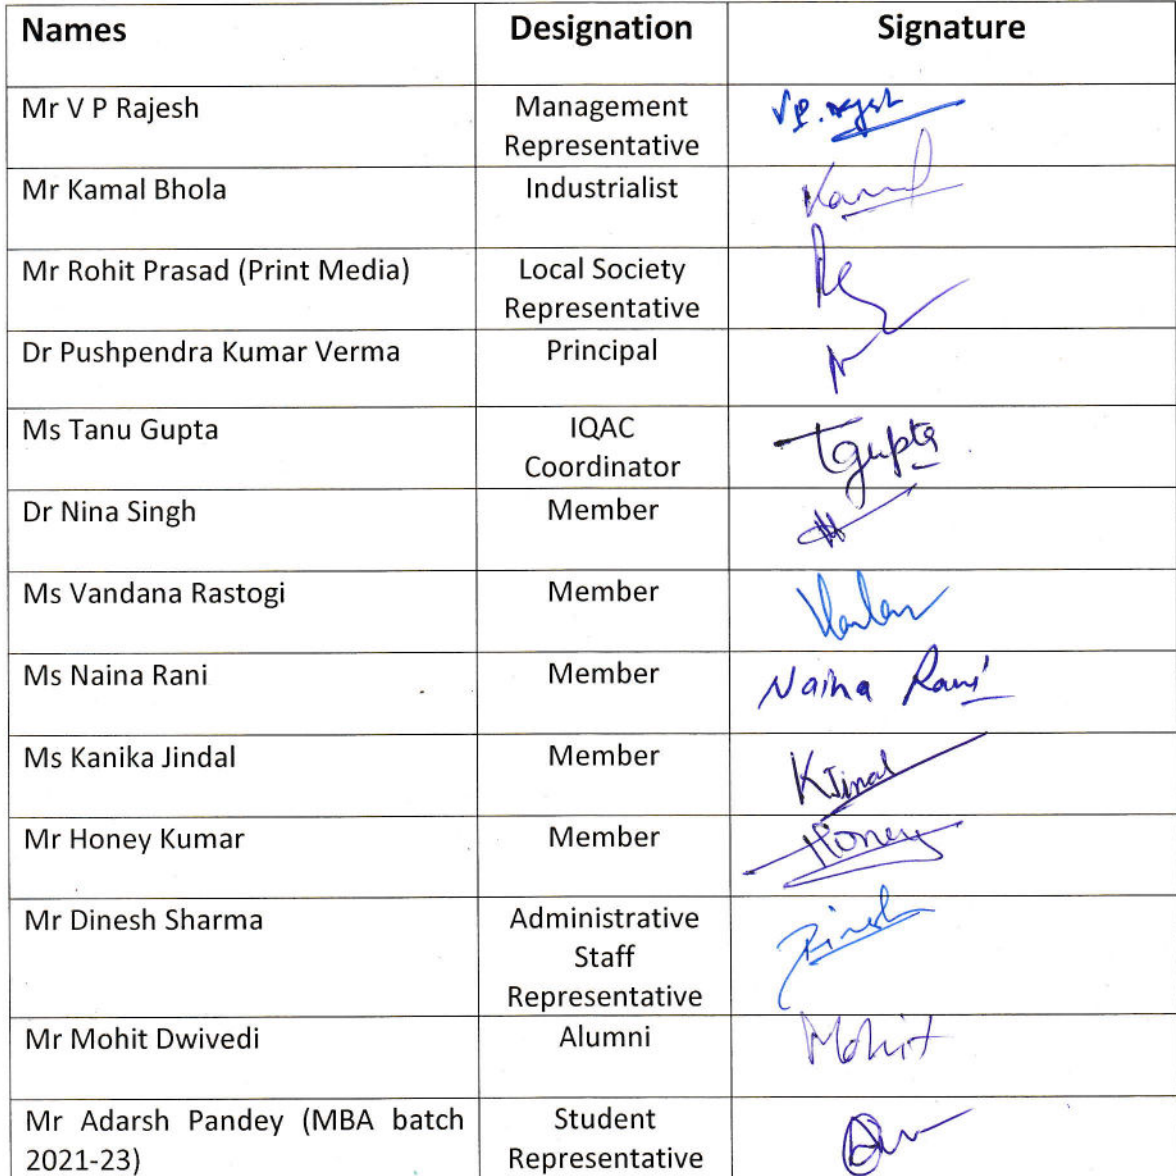 Names Designation Signature
Mr V P Rajesh Management V P. Rajesh
Representative
Mr Kamal Bhola Industrialist Kamal
Mr Rohit Prasad (Print Media) Local Society
Representative
Dr Pushpendra Kumar Verma Principal
Ms Tanu Gupta IQAC Tgupta
Coordinator
Dr Nina Singh Member
Ms Vandana Rastogi Member
Ms Naina Rani Member Naina Rani
Ms Kanika Jindal Member
Mr Honey Kumar Member Honey
Mr Dinesh Sharma Administrative Dinesh
Staff
Representative
Mr Mohit Dwivedi Alumni Mohit
Mr Adarsh Pandey (MBA batch Student
2021-23) Representative